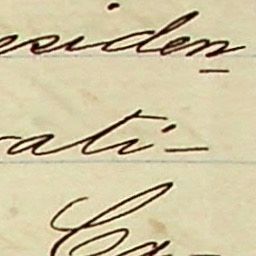 esiden
rati-
Ca-